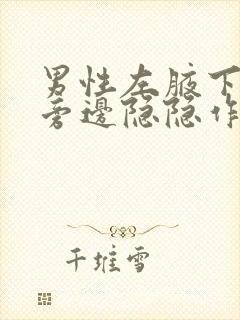 男性左腋下
旁邊隐隐作
千堆雪